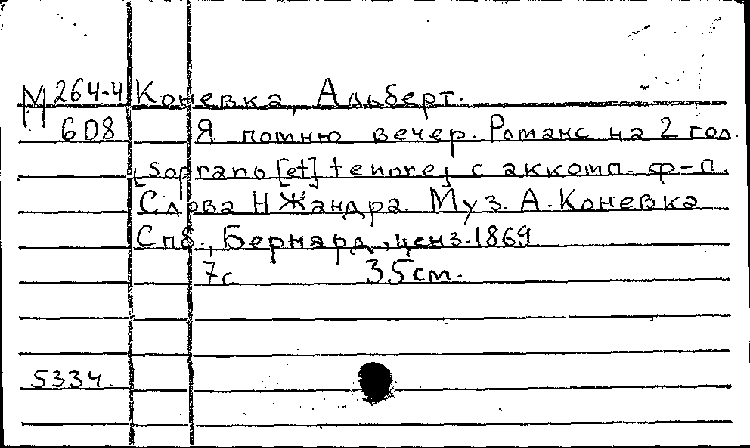 М 264-4 Коневка, Альберт.
608 Я помню вечер. Романс на 2 гол.
[soprano [et] tenore] с аккомп. ф-п.
Слова Н Жандра. Муз. А. Коневка
Спб., Бернард, ценз. 1869
7с 35 см.
5334